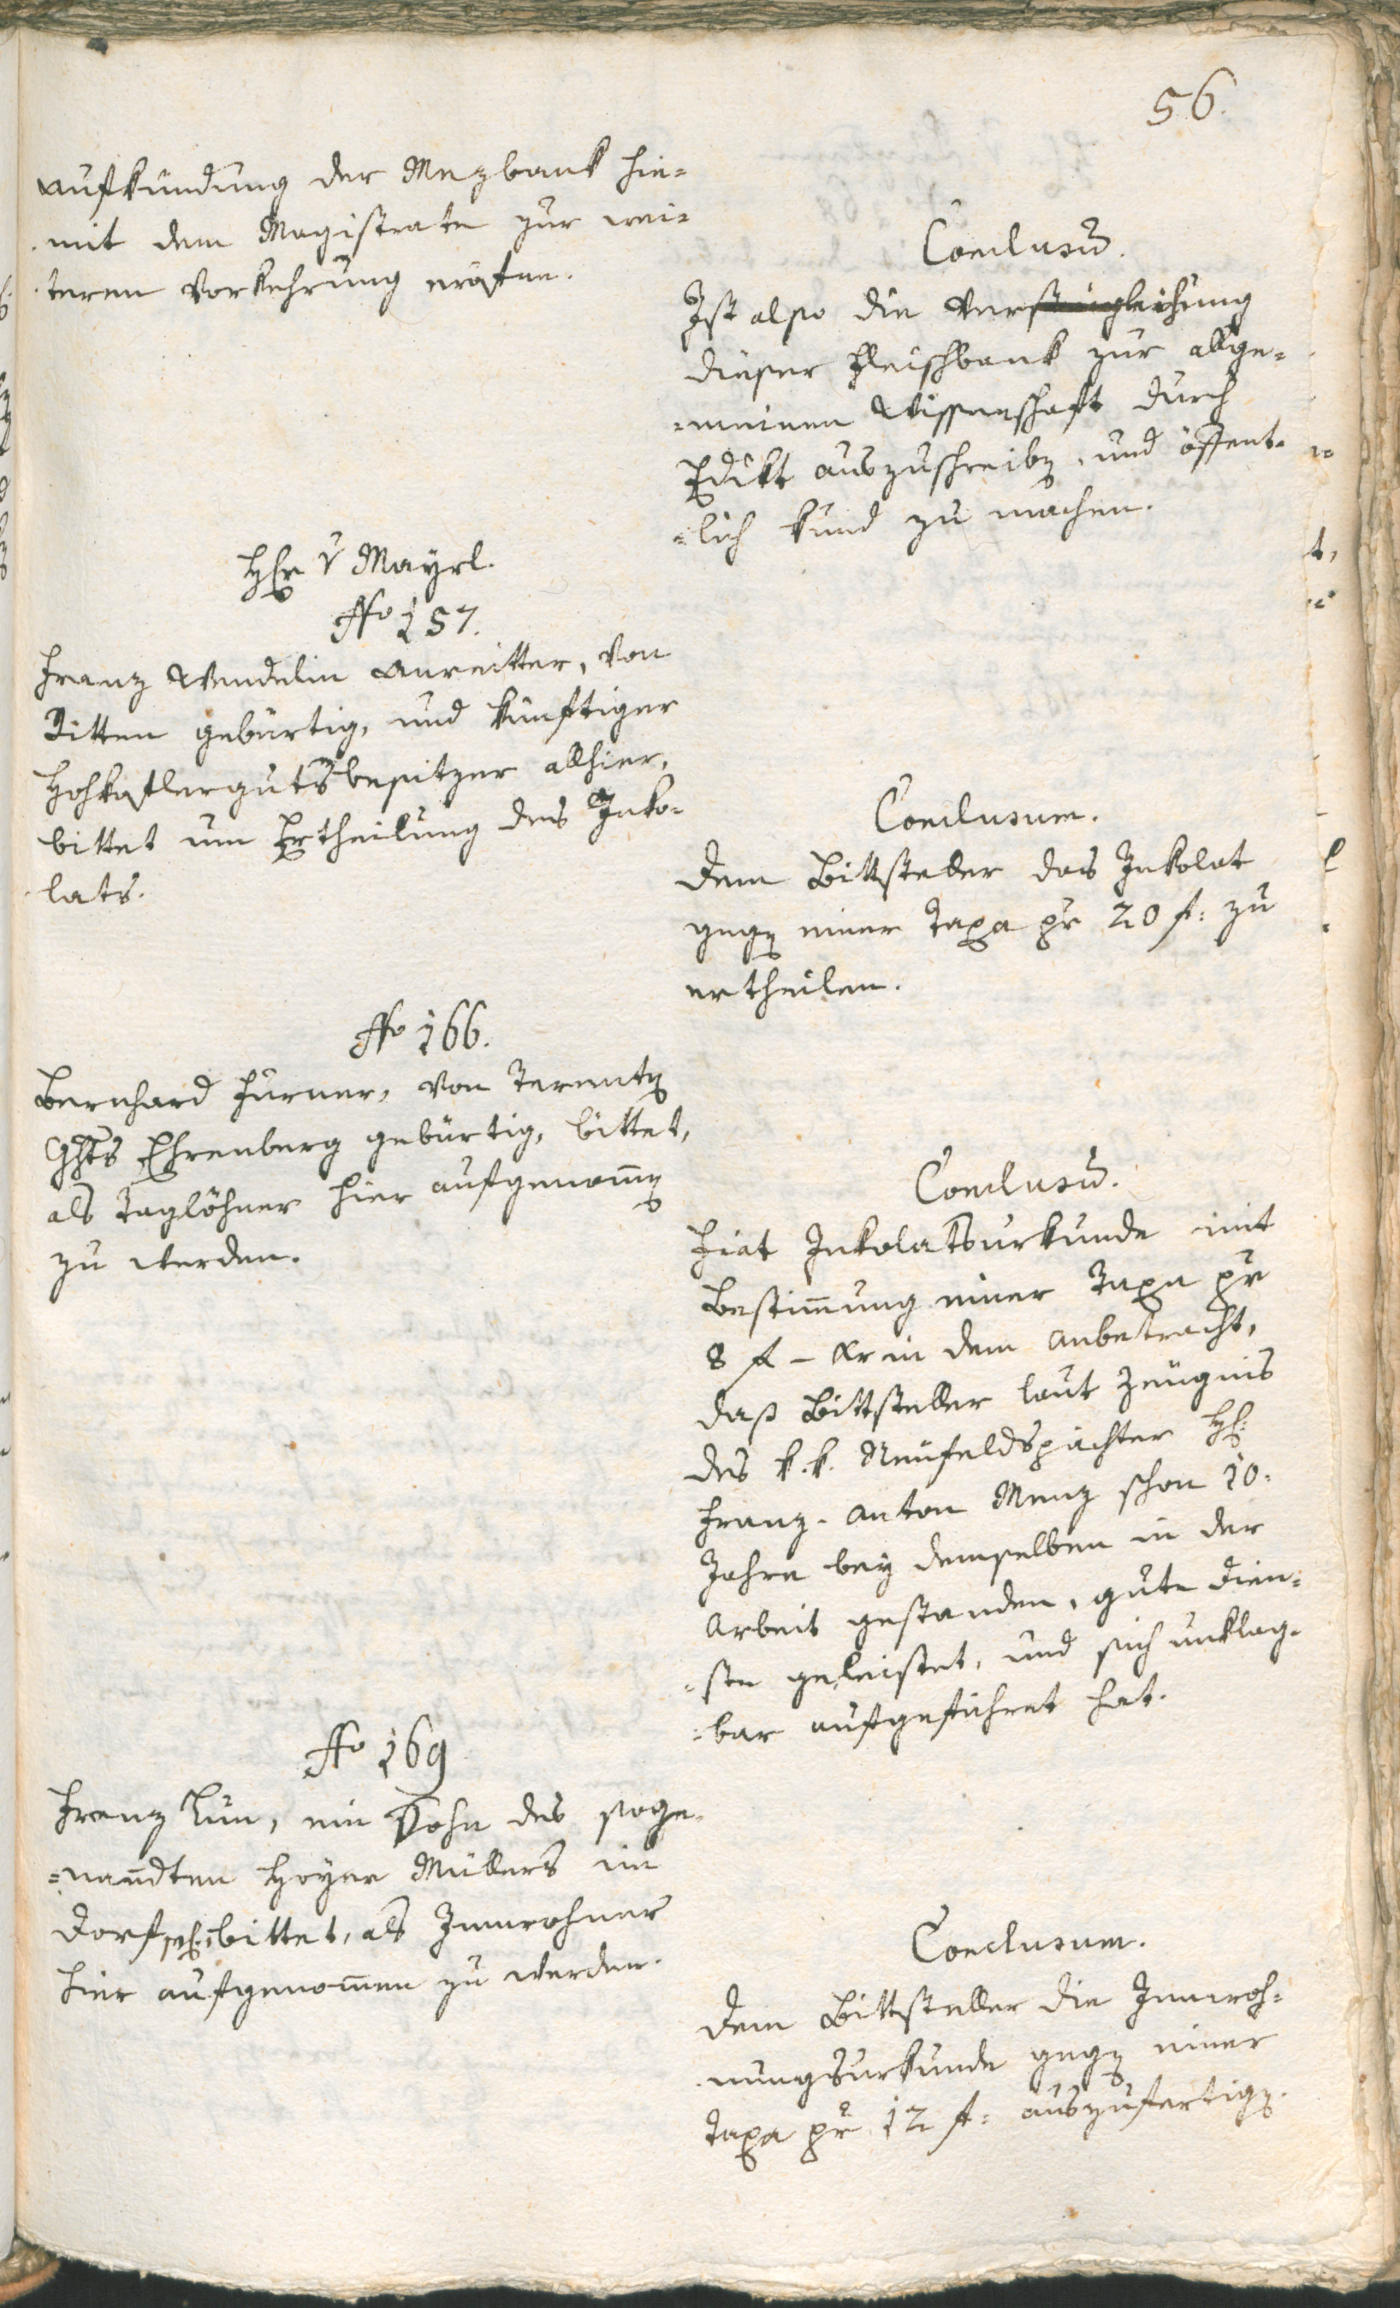 56.
Aufkündung der Mezbank hie=
mit dem Magistrate zur wei=
teren Vorkehrung eröfne.
Conclusum̅.
Ist also die Verstüngleichung
dieser Fleischbank zur allge=
=meinen Wissenschaft durch
Edikt auszuschreibē, und öffent=
=lich kund zu machen.
Hr v Mayrl.
No 157.
Franz Wendelin Anreitter, von
Ritten gebürtig, und künftiger
Hohkoflergutsbesitzer allhier,
bittet um Ertheilung des Inko=
lats.
Conclusum.
Dem Bittsteller das Inkolat
gegē einer Taxa pr 20 f: zu
ertheilen.
No 166.
Bernhard Furner, von Terentē
Ghts Ehrenberg gebürtig, bittet,
als Taglöhner hier aufgenom̅ē
zu werden.
Conclusu̅.
Fiat Inkolatsurkunde mit
Bestim̅ung einer Taxa pr
8 f – kr in dem Anbetracht,
daß Bittsteller laut Zeugnis
des k. k. Neufeldspächter H:
Franz Anton Menz schon 10.
Jahre bey demselben in der
Arbeit gestanden, gute Dien=
=ste geleistet, und sich unklag=
=bar aufgeführet hat.
No 169
Franz Lun, ein Sohn des soge=
=nan̅dten Hoyer Müllers im
Dorf bittet, als Innwohner
hier aufgenom̅en zu werden.
Conclusum.
Dem Bittsteller die Innwoh=
nungsurkunde gegē einer
Taxa pr 12 f: auszufertigē.